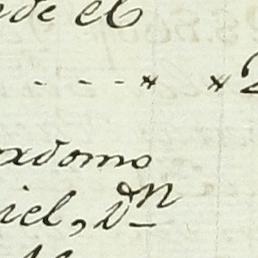 de el
- - - - * * 2
xdomo
iel, Dn